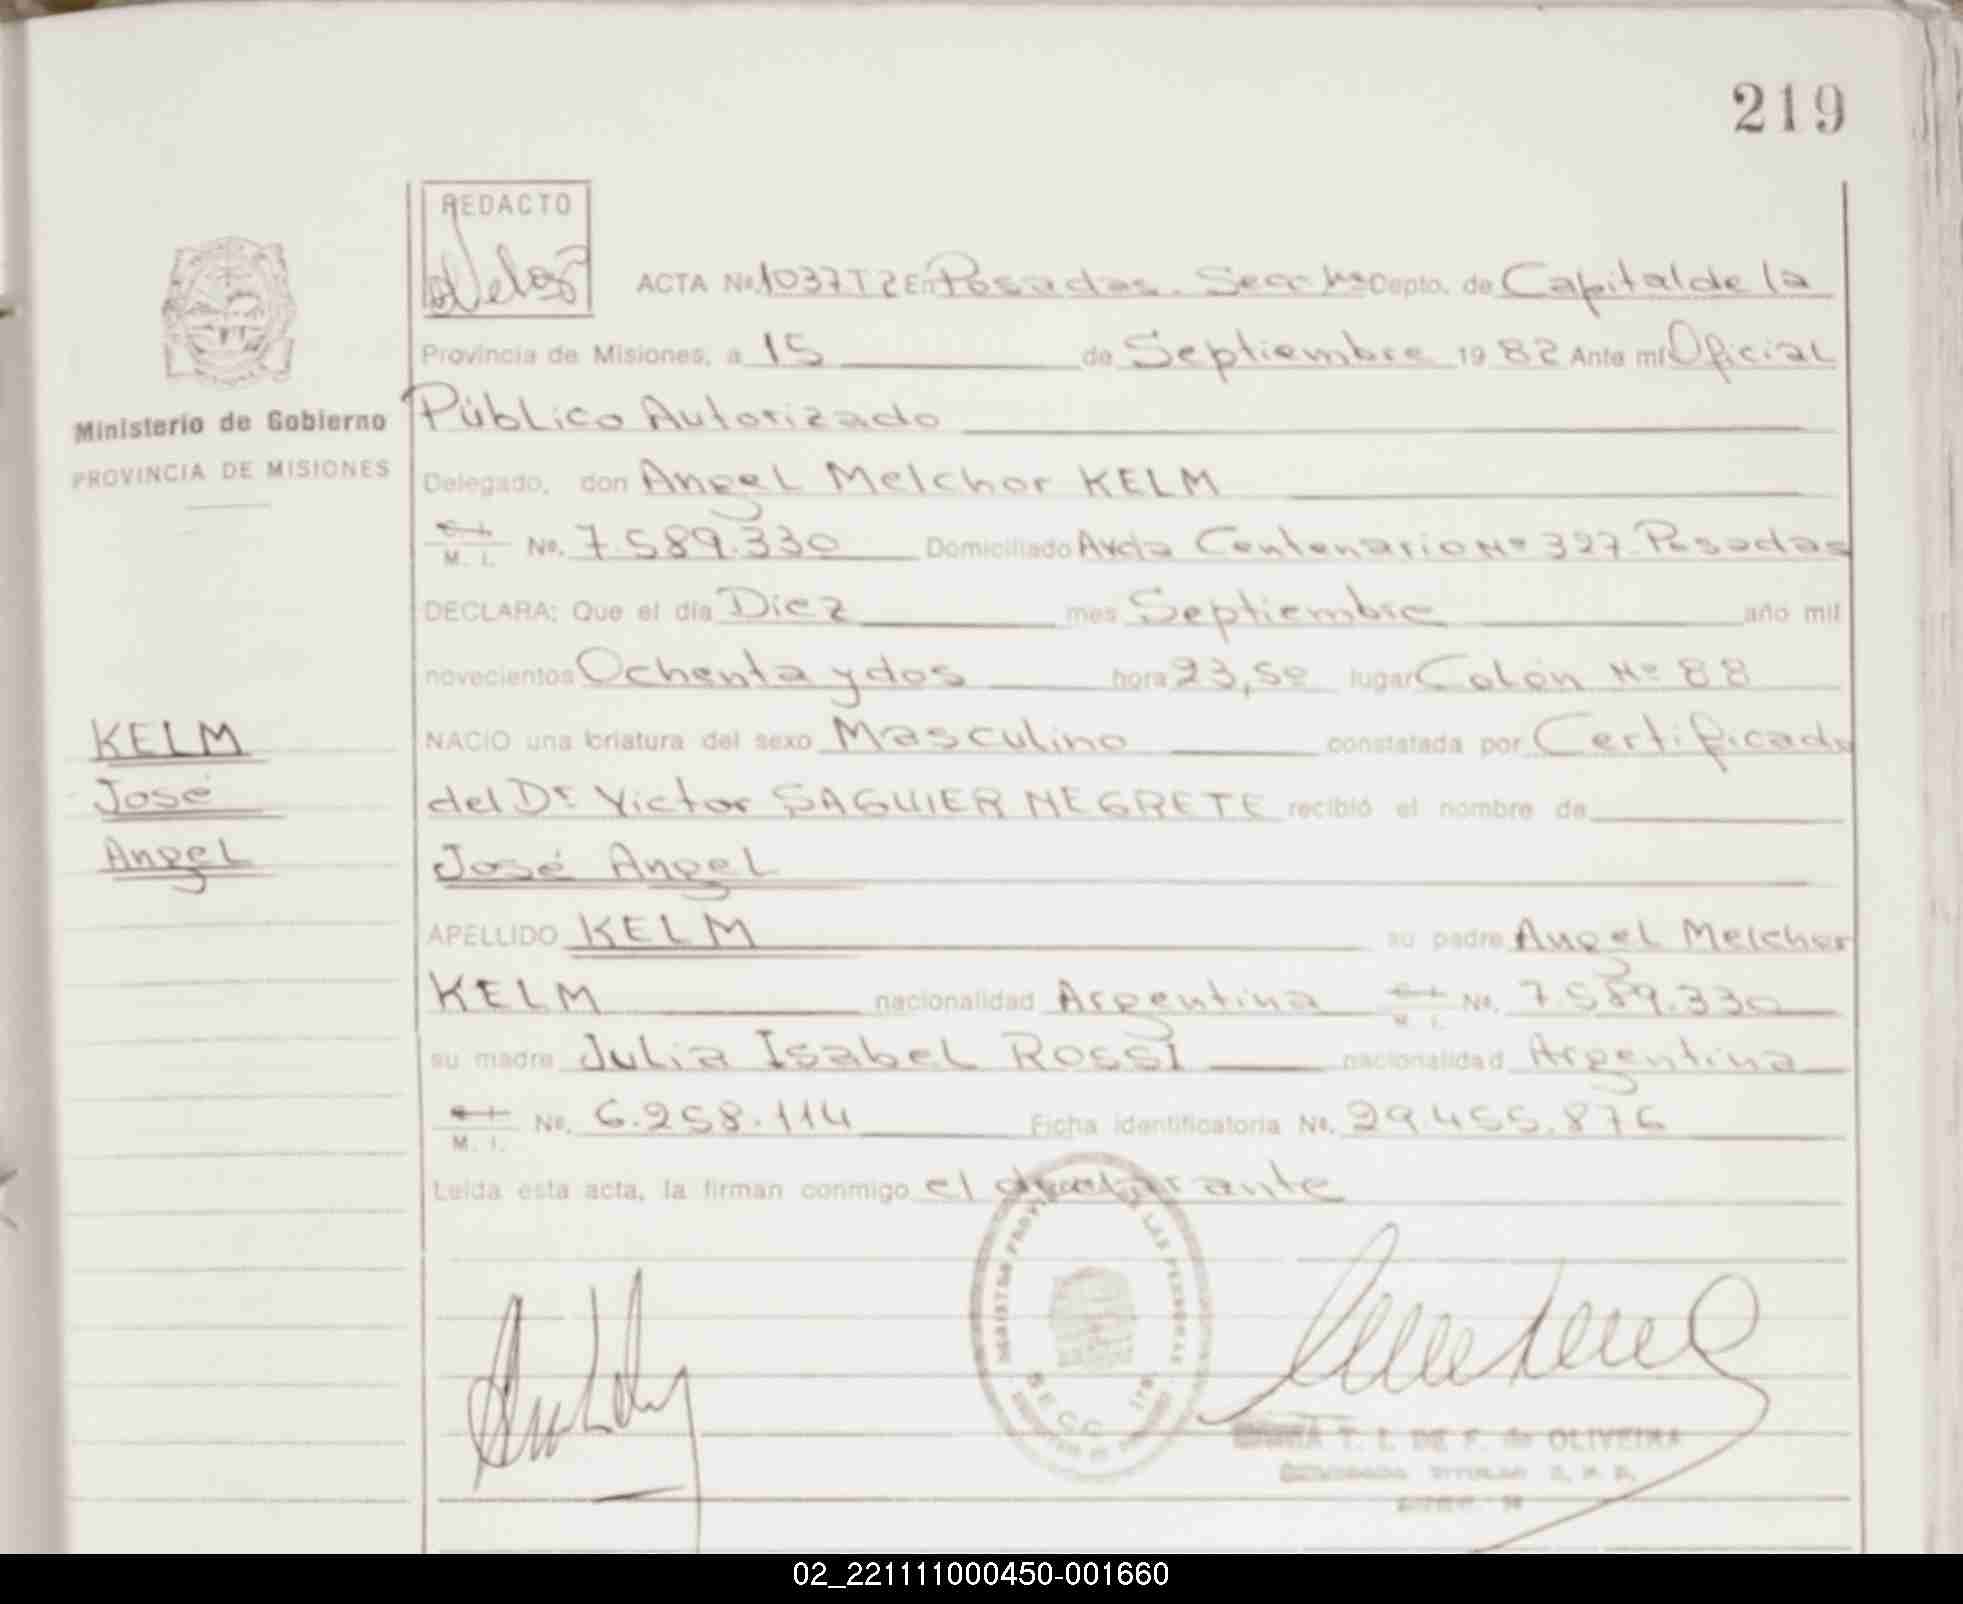 219
REDACTO
ACTA No. 1037 T2 En Posadas. Secc 1ra Depto. de Capital de la
Provincia de Misiones, a 15 de Septiembre 1982 Ante mí Oficial
Ministerio de Gobierno
PROVINCIA DE MISIONES
Público Autorizado
Delegado, don Angel Melchor KELM
M. I. No. 7.589.330 Domiciliado Avda Centenario Nº 327. Posadas
DECLARA: Que el día Diez mes Septiembre año mil
novecientos Ochenta y dos hora 23,50 lugar Colón Nº 88
KELM
José
Angel
NACIO una criatura del sexo Masculino constatada por Certificado
del Dr Victor SAGUIER NEGRETE recibió el nombre de
José Angel
APELLIDO KELM su padre Angel Melchor
KELM nacionalidad Argentina M. I. No. 7.589.330
su madre Julia Isabel ROSSI nacionalidad Argentina
M. I. No. 6.258.114 Ficha identificatoria No. 29.455.876
Leida esta acta, la firman conmigo el declarante
LAS PERSONAS
SECC. 1ra
T. I. DE F. de OLIVEIRA
TITULAR
02_221111000450-001660